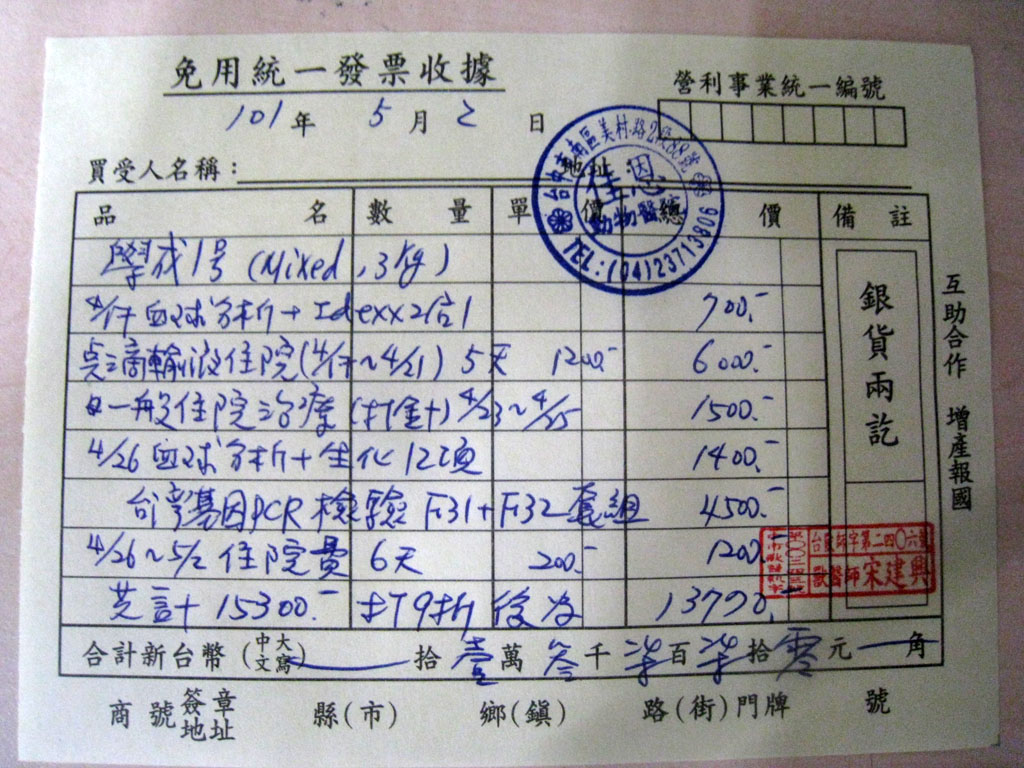 免用統一發票收據
營利事業統一編號
101年 5月 2日
買受人名稱：
地址
台中市南區美村路2段88號
佳恩
動物醫院
TEL:(04)23713806
品名 數量 單價 總價 備註
學成1号 (Mixed, 3kg)
4/17 血球分析+Idexx2合1 700.-
点滴輸液住院(4/17~4/21) 5天 1200.- 6000.-
一般住院治療(打針) 4/23~4/25 1500.-
4/26 血球分析+生化12項 1400.-
基因PCR檢驗 F31+F32套組 4500.-
4/26~5/2 住院費 6天 200.- 1200.-
共計 15300.- 打9折後為 13770.-
銀貨兩訖
互助合作 增產報國
獸醫師 宋建興
合計新台幣(中文大寫) 拾壹萬叁千柒百柒拾零元 角
商號簽章地址 縣(市) 鄉(鎮) 路(街)門牌 號